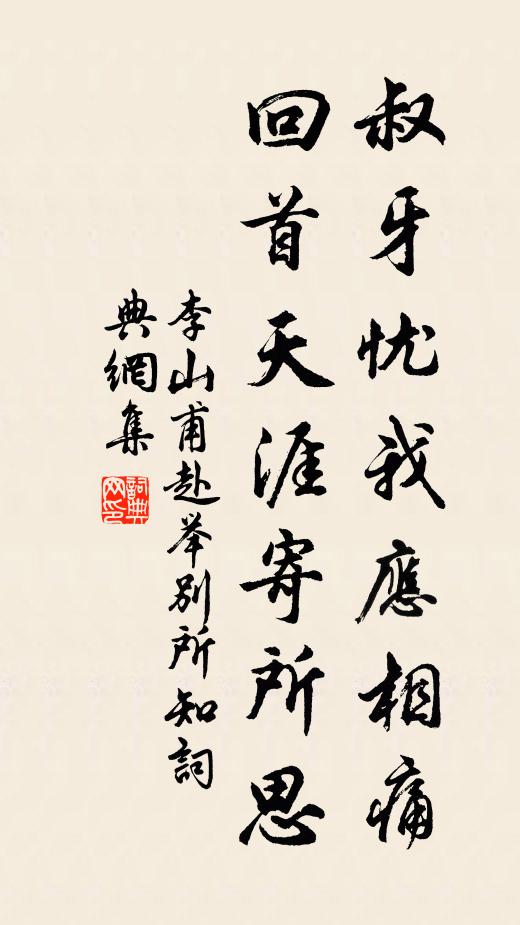 叔牙忧我應相痛
回首天涯寄所思
李山甫赴举別所知詞
典網集
詞典网印